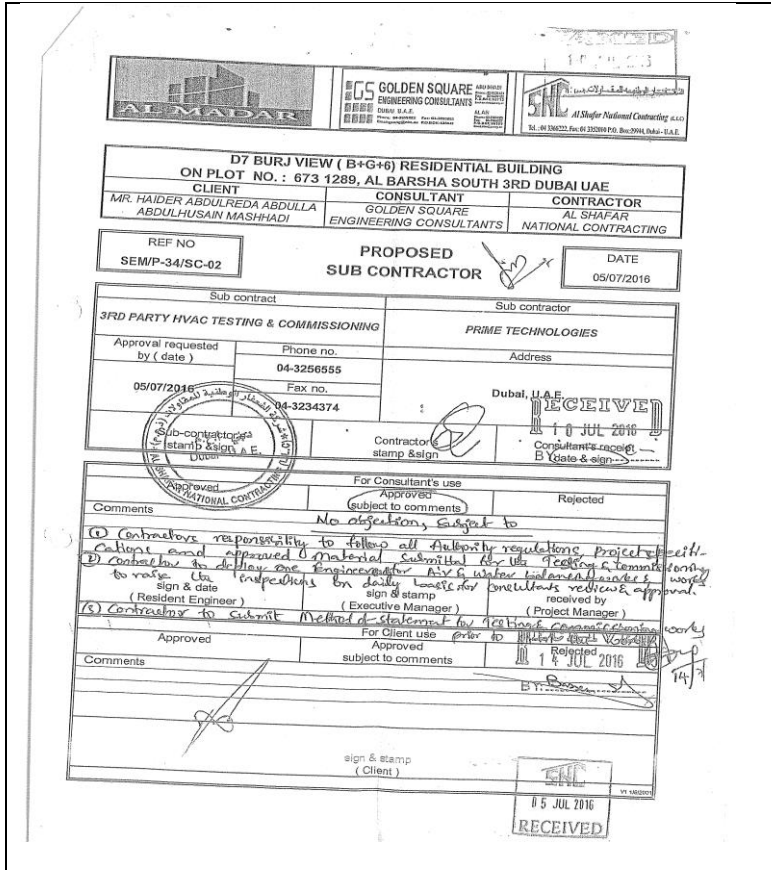 AL MADAR
GS GOLDEN SQUARE
ENGINEERING CONSULTANTS
DUBAI U.A.E.
SNC
Al Shafar National Contracting (L.L.C)
Tel.: 04 3366222, Fax: 04 P.O. Box: Dubai - U.A.E.
D7 BURJ VIEW ( B+G+6) RESIDENTIAL BUILDING
ON PLOT NO. : 673 1289, AL BARSHA SOUTH 3RD DUBAI UAE
CLIENT
MR. HAIDER ABDULREDA ABDULLA ABDULHUSAIN MASHHADI
CONSULTANT
GOLDEN SQUARE
ENGINEERING CONSULTANTS
CONTRACTOR
AL SHAFAR
NATIONAL CONTRACTING
REF NO
SEM/P-34/SC-02
PROPOSED
SUB CONTRACTOR
DATE
05/07/2016
Sub contract
Sub contractor
3RD PARTY HVAC TESTING & COMMISSIONING
PRIME TECHNOLOGIES
Approval requested
by ( date )
Phone no.
Address
04-3256555
05/07/2016
Fax no.
Dubai, U.A.E
04-3234374
RECEIVED
10 JUL 2016
Sub-contractor's
stamp &sign
Contractor's
stamp &sign
Consultant's receipt
BY date & sign
NATIONAL CONTRACTING
For Consultant's use
Approved
Approved
(subject to comments)
Rejected
Comments
No objection, subject to
(1) Contractors responsibility to follow all Authority regulations, project specifi-
cations and approved material submittal for the Testing & commissioning
(2) Contractor to deploy one Engineer for Air & water balancing works works
to raise the inspections on daily basis for consultants review & approval.
sign & date
( Resident Engineer )
sign & stamp
( Executive Manager )
received by
( Project Manager )
(3) Contractor to submit Method of statement for Testing & commissioning works
prior to
For Client use
Approved
Approved
subject to comments
Rejected
14 JUL 2016
14/7
Comments
BY:
sign & stamp
( Client )
SNC
05 JUL 2016
RECEIVED